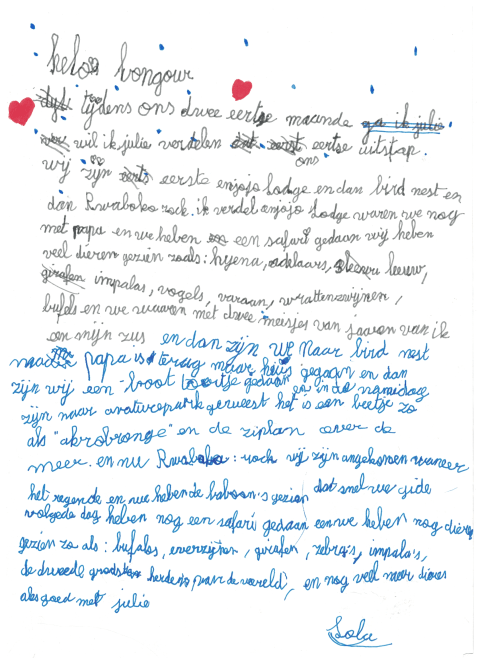 helo bongour
tijdens ons dwee eertse maande ga ik julie
wil ik julie vertelen eertse uitstap.
ons
wij zijn eerts eerste enjojo Lodge en dan bird nest en
dan Rwaboko rock. ik verdel enjojo Lodge waren we nog
met papa en we heben een safari gedaan wij heben
veel dieren gezien zoals: hyena, adelaars, leeuw,
girafen impalas, vogels, varaan, wrattenzwijnen,
bufels en we waaren met dwee meisjes van jaaren van ik
en mijn zus en dan zijn we naar bird nest
papa is terug naar huis gegaan en dan
zijn wij een boot toertje gedaan en in de namidag
zijn naar avaturepark geweest het is een beetje zo
als "akrobronge" en de ziplan over de
meer. en nu Rwaboko: rock wij zijn angekomen waneer
het regende en we heben de baboon's gezien dat snel we gide
volgede dag heben nog een safari gedaan en we heben nog diere
gezien zo als: bufalos, everzijnen, girafen, zebra's, impala's,
de dweede grootste herdens paar de wereld, en nog veel meer dieres
als goed met julie
Lola